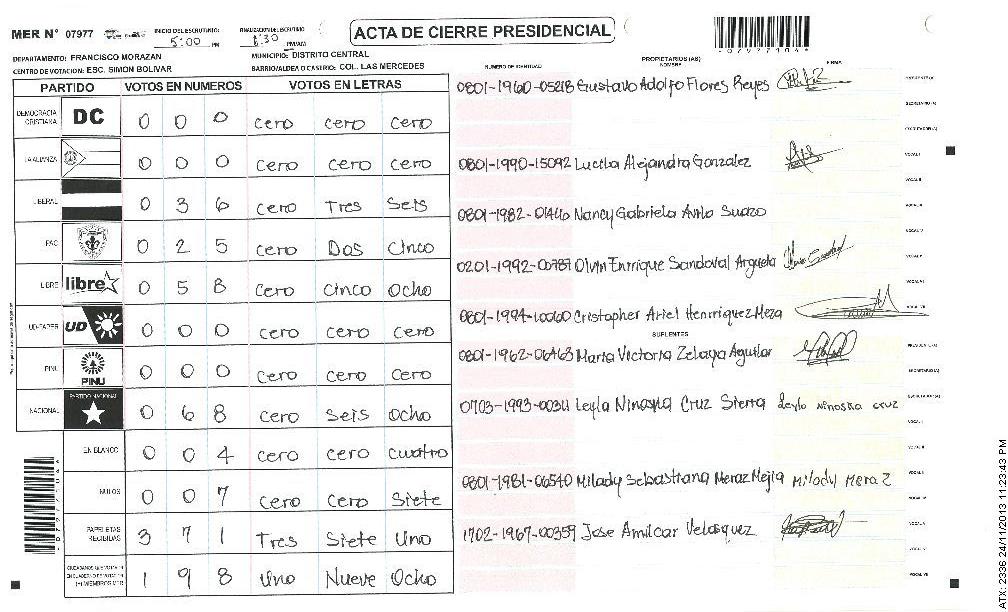 MER N° 07977 INICIO DEL ESCRUTINIO: 5:00 PM FINALIZACION DEL ESCRUTINIO: 8:30 PM/AM
ACTA DE CIERRE PRESIDENCIAL
DEPARTAMENTO: FRANCISCO MORAZAN MUNICIPIO: DISTRITO CENTRAL
CENTRO DE VOTACION: ESC. SIMON BOLIVAR BARRIO/ALDEA O CASERIO: COL. LAS MERCEDES
PARTIDO VOTOS EN NUMEROS VOTOS EN LETRAS
DEMOCRACIA CRISTIANA DC 0 0 0 cero cero cero
LA ALIANZA 0 0 0 cero cero cero
LIBERAL 0 3 6 cero Tres Seis
PAC 0 2 5 cero Dos Cinco
LIBRE libre 0 5 8 cero Cinco Ocho
UD-FAPER UD 0 0 0 cero cero Cero
PINU PINU 0 0 0 cero cero Cero
NACIONAL PARTIDO NACIONAL 0 6 8 cero Seis Ocho
EN BLANCO 0 0 4 cero cero cuatro
NULOS 0 0 7 cero Cero Siete
PAPELETAS RECIBIDAS 3 7 1 Tres Siete Uno
1 9 8 Uno Nueve Ocho
NUMERO DE IDENTIDAD PROPIETARIOS (AS) NOMBRE FIRMA
0801-1960-05218 Gustavo Adolfo Flores Reyes
0801-1990-15092 Lucila Alejandra Gonzalez
0801-1982-01440 Nancy Gabriela Avila Suazo
0201-1992-00787 Olvin Enrrique Sandoval Argueta
0801-1994-10060 Cristopher Ariel Henrriquez Meza
SUPLENTES
0801-1962-06463 Maria Victoria Zelaya Aguilar
0703-1993-00311 Leyla Ninoska Cruz Sierra Leyla Ninoska Cruz
0801-1981-06540 Milady Sebastiana Meraz Mejia Milady Meraz
1702-1967-00359 Jose Amilcar Velasquez
ATX: 2336 24/11/2013 11:23:43 PM